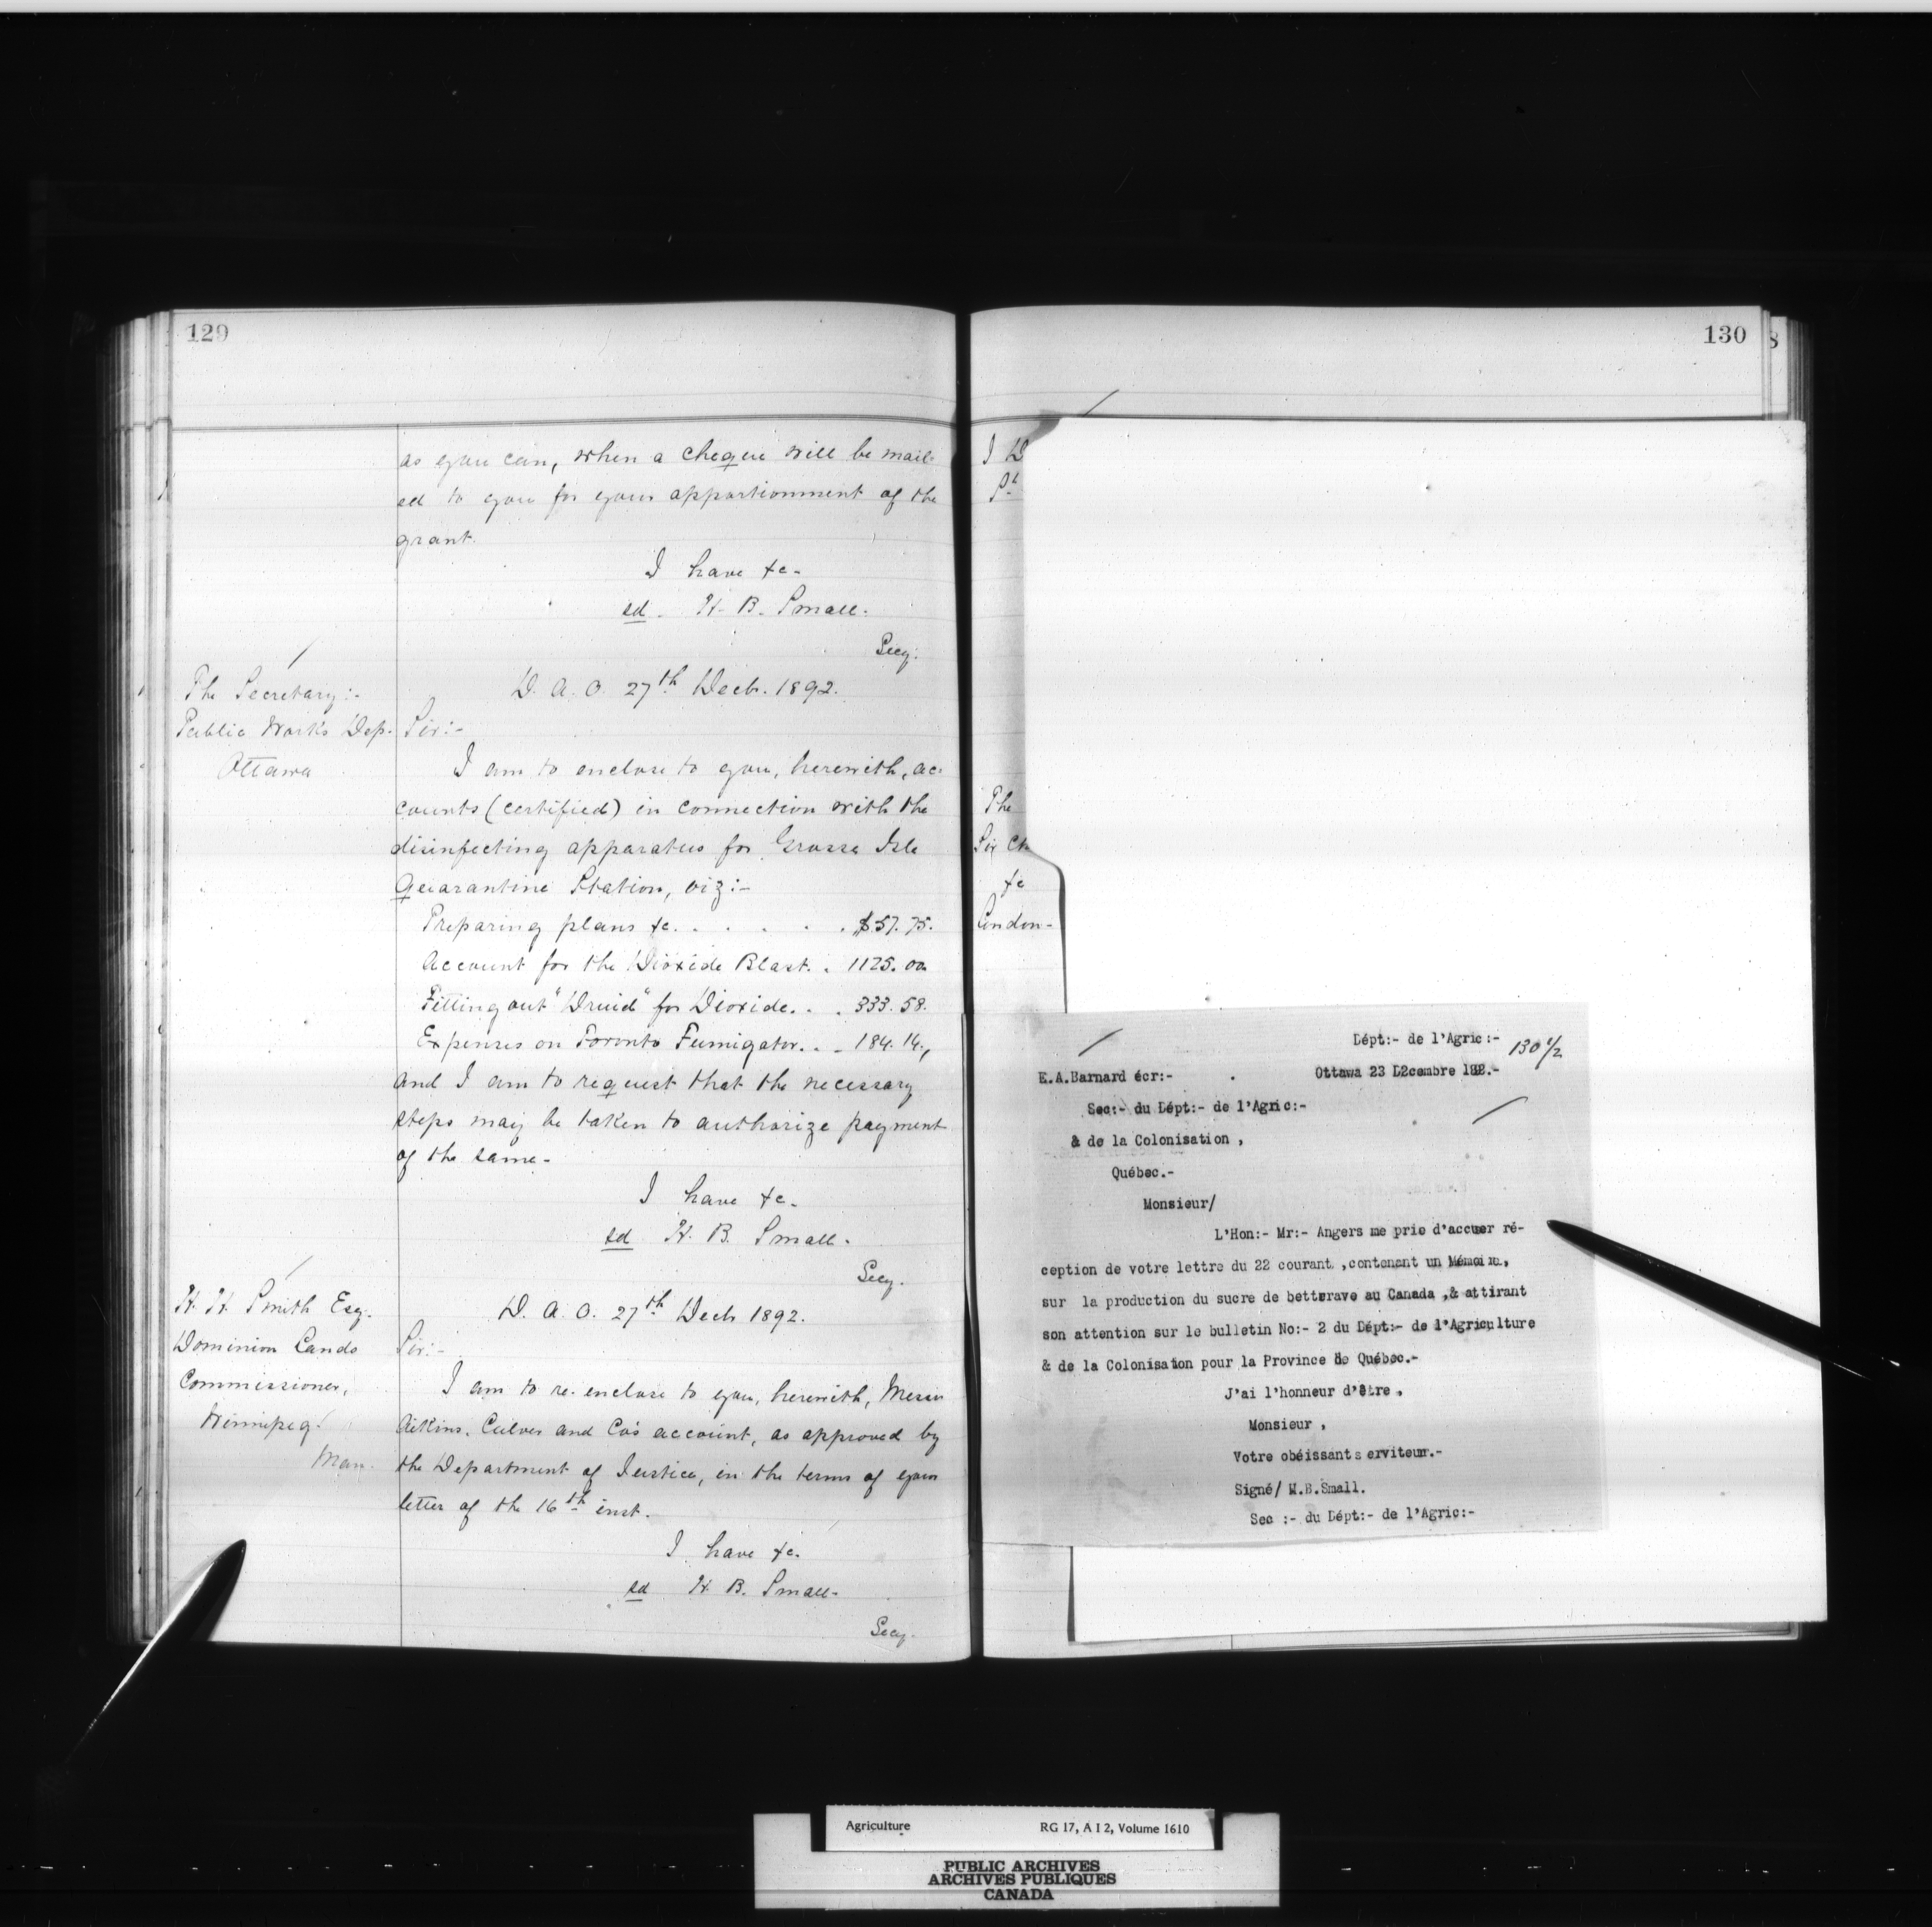 129
as you can, when a cheque will be mail-
ed to you for your apportionment of the
grant.
I have &c-
sd. H. B. Small.
Secy.
The Secretary:-
Public Works Dep.
Ottawa
D. A. O. 27th Decb. 1892.
Sir:-
I am to enclose to you, herewith, ac-
counts (certified) in connection with the
disinfecting apparatus for Grosse Isle
Quarantine Station, viz:-
Preparing plans &c. . . . . . $57.75.
Account for the Dioxide Blast. . 1125.00
Fitting out "Druid" for Dioxide. . . 333.58.
Expenses on Toronto Fumigator. . . 184.14.,
and I am to request that the necessary
steps may be taken to authorize payment
of the same-
I have &c.
sd H. B. Small.
Secy.
H. H. Smith Esq.
Dominion Lands
Commissioner,
Winnipeg.
Man.
D. A. O. 27th Decb 1892.
Sir:-
I am to re-enclose to you, herewith, Messrs
Aikins, Culver and Co's account, as approved by
the Department of Justice, in the terms of your
letter of the 16th inst.
I have &c.
sd H. B. Small-
Secy.
130
8
I D
The
Sir Ch
&c
London-
Dépt:- de l'Agric:-
130 1/2
E.A.Barnard écr:-
Ottawa 23 D2cembre 188.-
Sec:- du Dépt:- de l'Agric:-
& de la Colonisation ,
Québec.-
Monsieur/
L'Hon:- Mr:- Angers me prie d'accuser ré-
ception de votre lettre du 22 courant ,contenant un Mémoire,
sur la production du sucre de betterave au Canada ,& attirant
son attention sur le bulletin No:- 2 du Dépt:- de l'Agriculture
& de la Colonisation pour la Province de Québec.-
J'ai l'honneur d'être ,
Monsieur ,
Votre obéissant s erviteur.-
Signé/ M.B.Small.
Sec :- du Dépt:- de l'Agric:-
Agriculture RG 17, A I 2, Volume 1610
PUBLIC ARCHIVES
ARCHIVES PUBLIQUES
CANADA